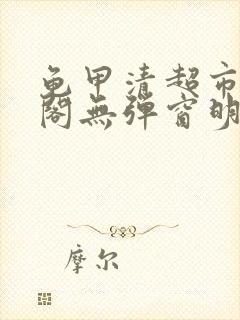 龟甲清超市
阁無弹窗明
摩尔